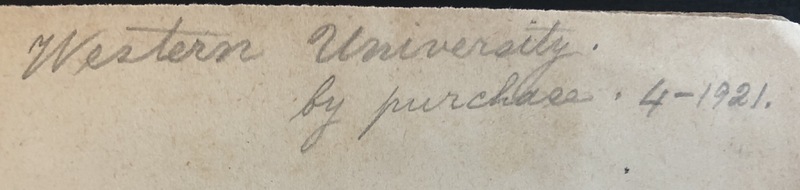 Western University.
by purchase. 4-1921.